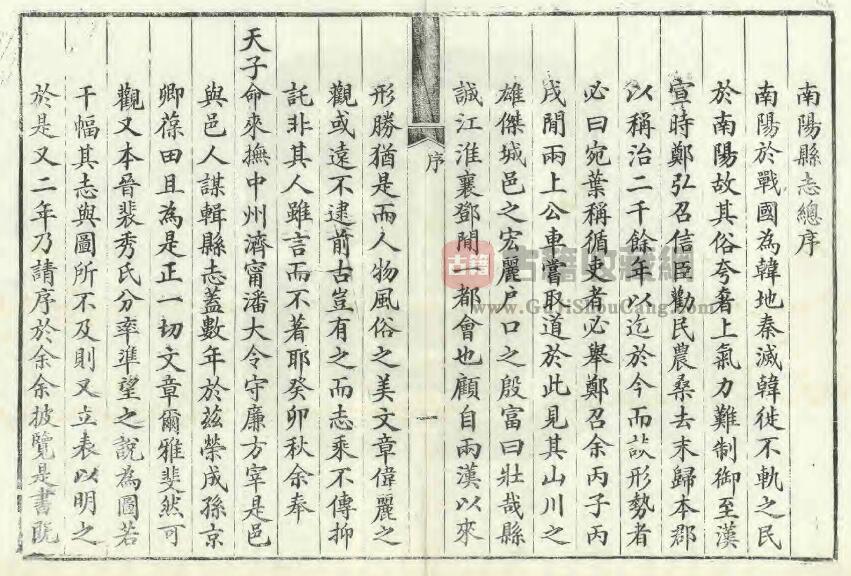 南陽縣志總序
南陽於戰國為韓地秦滅韓徙不軌之民
於南陽故其俗夸奢上氣力難制御至漢
宣時鄭弘召信臣勸民農桑去末歸本郡
以稱治二千餘年以迄於今而談形勢者
必曰宛葉稱循吏者必舉鄭召余丙子丙
戌閒兩上公車嘗取道於此見其山川之
雄傑城邑之宏麗戶口之殷富曰壯哉縣
誠江淮襄鄧閒一都會也顧自兩漢以來
序
一
形勝猶是而人物風俗之美文章偉麗之
觀或遠不逮前古豈有之而志乘不傳抑
託非其人雖言而不著耶癸卯秋余奉
天子命來撫中州濟甯潘大令守廉方宰是邑
與邑人謀輯縣志蓋數年於茲榮成孫京
卿葆田且為是正一切文章爾雅斐然可
觀又本晉裴秀氏分率準望之說為圖若
干幅其志與圖所不及則又立表以明之
於是又二年乃請序於余余披覽是書既
古籍
古籍收藏網
www.GujiShouCang.com